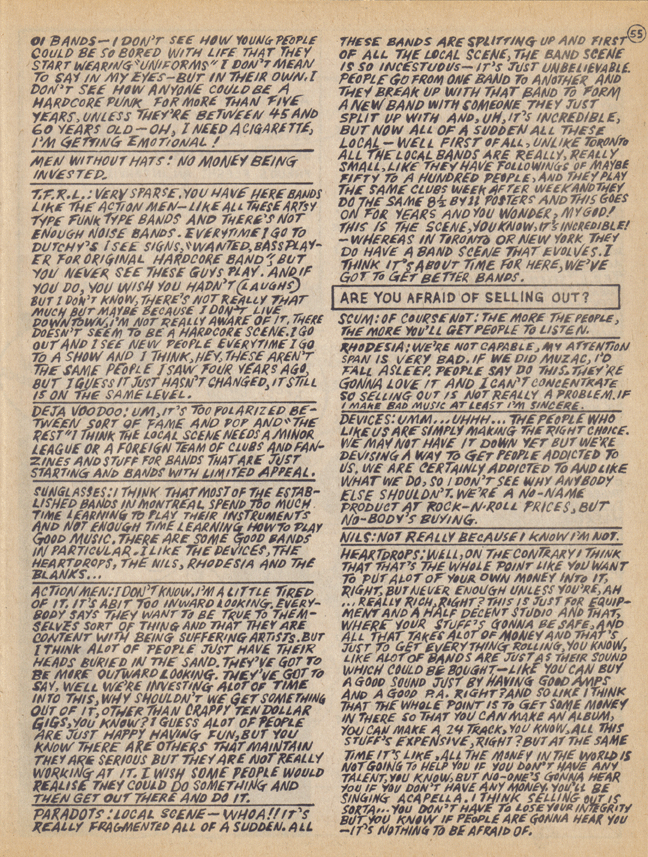 55
OI BANDS—I DON'T SEE HOW YOUNG PEOPLE
COULD BE SO BORED WITH LIFE THAT THEY
START WEARING "UNIFORMS" I DON'T MEAN
TO SAY IN MY EYES—BUT IN THEIR OWN. I
DON'T SEE HOW ANYONE COULD BE A
HARDCORE PUNK FOR MORE THAN FIVE
YEARS, UNLESS THEY'RE BETWEEN 45 AND
60 YEARS OLD—OH, I NEED A CIGARETTE,
I'M GETTING EMOTIONAL!
MEN WITHOUT HATS: NO MONEY BEING
INVESTED.
T.F.R.L.: VERY SPARSE. YOU HAVE HERE BANDS
LIKE THE ACTION MEN—LIKE ALL THESE ARTSY
TYPE FUNK TYPE BANDS AND THERE'S NOT
ENOUGH NOISE BANDS. EVERYTIME I GO TO
DUTCHY'S I SEE SIGNS, "WANTED, BASS PLAY-
ER FOR ORIGINAL HARDCORE BAND", BUT
YOU NEVER SEE THESE GUYS PLAY. AND IF
YOU DO, YOU WISH YOU HADN'T (LAUGHS)
BUT I DON'T KNOW, THERE'S NOT REALLY THAT
MUCH BUT MAYBE BECAUSE I DON'T LIVE
DOWNTOWN, I'M NOT REALLY AWARE OF IT, THERE
DOESN'T SEEM TO BE A HARDCORE SCENE. I GO
OUT AND I SEE NEW PEOPLE EVERYTIME I GO
TO A SHOW AND I THINK, HEY, THESE AREN'T
THE SAME PEOPLE I SAW FOUR YEARS AGO,
BUT I GUESS IT JUST HASN'T CHANGED, IT STILL
IS ON THE SAME LEVEL.
DEJA VOODOO: UM, IT'S TOO POLARIZED BE-
TWEEN SORT OF FAME AND POP AND "THE
REST" I THINK THE LOCAL SCENE NEEDS A MINOR
LEAGUE OR A FOREIGN TEAM OF CLUBS AND FAN-
ZINES AND STUFF FOR BANDS THAT ARE JUST
STARTING AND BANDS WITH LIMITED APPEAL.
SUNGLASSES: I THINK THAT MOST OF THE ESTAB-
LISHED BANDS IN MONTREAL SPEND TOO MUCH
TIME LEARNING TO PLAY THEIR INSTRUMENTS
AND NOT ENOUGH TIME LEARNING HOW TO PLAY
GOOD MUSIC. THERE ARE SOME GOOD BANDS
IN PARTICULAR. I LIKE THE DEVICES, THE
HEARTDROPS, THE NILS, RHODESIA AND THE
BLANKS...
ACTION MEN: I DON'T KNOW. I'M A LITTLE TIRED
OF IT. IT'S A BIT TOO INWARD LOOKING. EVERY-
BODY SAYS THEY WANT TO BE TRUE TO THEM-
SELVES SORT OF THING AND THAT THEY ARE
CONTENT WITH BEING SUFFERING ARTISTS. BUT
I THINK ALOT OF PEOPLE JUST HAVE THEIR
HEADS BURIED IN THE SAND. THEY'VE GOT TO
BE MORE OUTWARD LOOKING. THEY'VE GOT TO
SAY, WELL WE'RE INVESTING ALOT OF TIME
INTO THIS, WHY SHOULDN'T WE GET SOMETHING
OUT OF IT, OTHER THAN CRAPPY TEN DOLLAR
GIGS, YOU KNOW? I GUESS ALOT OF PEOPLE
ARE JUST HAPPY HAVING FUN, BUT YOU
KNOW THERE ARE OTHERS THAT MAINTAIN
THEY ARE SERIOUS BUT THEY ARE NOT REALLY
WORKING AT IT. I WISH SOME PEOPLE WOULD
REALISE THEY COULD DO SOMETHING AND
THEN GET OUT THERE AND DO IT.
PARADOTS: LOCAL SCENE—WHOA!! IT'S
REALLY FRAGMENTED ALL OF A SUDDEN. ALL
THESE BANDS ARE SPLITTING UP AND FIRST
OF ALL THE LOCAL SCENE, THE BAND SCENE
IS SO INCESTUOUS—IT'S JUST UNBELIEVABLE.
PEOPLE GO FROM ONE BAND TO ANOTHER AND
THEY BREAK UP WITH THAT BAND TO FORM
A NEW BAND WITH SOMEONE THEY JUST
SPLIT UP WITH AND, UM, IT'S INCREDIBLE,
BUT NOW ALL OF A SUDDEN ALL THESE
LOCAL—WELL FIRST OF ALL, UNLIKE TORONTO
ALL THE LOCAL BANDS ARE REALLY, REALLY
SMALL, LIKE THEY HAVE FOLLOWINGS OF MAYBE
FIFTY TO A HUNDRED PEOPLE, AND THEY PLAY
THE SAME CLUBS WEEK AFTER WEEK AND THEY
DO THE SAME 8½ BY 11 POSTERS AND THIS GOES
ON FOR YEARS AND YOU WONDER, MY GOD!
THIS IS THE SCENE, YOU KNOW, IT'S INCREDIBLE!
—WHEREAS IN TORONTO OR NEW YORK THEY
DO HAVE A BAND SCENE THAT EVOLVES. I
THINK IT'S ABOUT TIME FOR HERE, WE'VE
GOT TO GET BETTER BANDS.
ARE YOU AFRAID OF SELLING OUT?
SCUM: OF COURSE NOT: THE MORE THE PEOPLE,
THE MORE YOU'LL GET PEOPLE TO LISTEN.
RHODESIA: WE'RE NOT CAPABLE, MY ATTENTION
SPAN IS VERY BAD. IF WE DID MUZAC, I'D
FALL ASLEEP. PEOPLE SAY DO THIS. THEY'RE
GONNA LOVE IT AND I CAN'T CONCENTRATE
SO SELLING OUT IS NOT REALLY A PROBLEM. IF
I MAKE BAD MUSIC AT LEAST I'M SINCERE.
DEVICES: UMM... UHHH... THE PEOPLE WHO
LIKE US ARE SIMPLY MAKING THE RIGHT CHOICE.
WE MAY NOT HAVE IT DOWN YET BUT WE'RE
DEVISING A WAY TO GET PEOPLE ADDICTED TO
US. WE ARE CERTAINLY ADDICTED TO AND LIKE
WHAT WE DO, SO I DON'T SEE WHY ANYBODY
ELSE SHOULDN'T. WE'RE A NO-NAME
PRODUCT AT ROCK-N-ROLL PRICES, BUT
NO-BODY'S BUYING.
NILS: NOT REALLY BECAUSE I KNOW I'M NOT.
HEARTDROPS: WELL, ON THE CONTRARY I THINK
THAT THAT'S THE WHOLE POINT LIKE YOU WANT
TO PUT ALOT OF YOUR OWN MONEY INTO IT,
RIGHT, BUT NEVER ENOUGH UNLESS YOU'RE, AH
... REALLY RICH, RIGHT? THIS IS JUST FOR EQUIP-
MENT AND A HALF DECENT STUDIO AND THAT'S
WHERE YOUR STUFF'S GONNA BE SAFE, AND
ALL THAT TAKES ALOT OF MONEY AND THAT'S
JUST TO GET EVERYTHING ROLLING, YOU KNOW,
LIKE ALOT OF BANDS ARE JUST AS THEIR SOUND
WHICH COULD BE BOUGHT—LIKE YOU CAN BUY
A GOOD SOUND JUST BY HAVING GOOD AMPS
AND A GOOD P.A. RIGHT? AND SO LIKE I THINK
THAT THE WHOLE POINT IS TO GET SOME MONEY
IN THERE SO THAT YOU CAN MAKE AN ALBUM,
YOU CAN MAKE A 24 TRACK, YOU KNOW, ALL THIS
STUFF'S EXPENSIVE, RIGHT? BUT AT THE SAME
TIME IT'S LIKE, ALL THE MONEY IN THE WORLD IS
NOT GOING TO HELP YOU IF YOU DON'T HAVE ANY
TALENT, YOU KNOW, BUT NO-ONE'S GONNA HEAR
YOU IF YOU DON'T HAVE ANY MONEY. YOU'LL BE
SINGING ACAPELLA. I THINK SELLING OUT IS
SORTA... YOU DON'T HAVE TO LOSE YOUR INTEGRITY
BUT YOU KNOW IF PEOPLE ARE GONNA HEAR YOU
—IT'S NOTHING TO BE AFRAID OF.